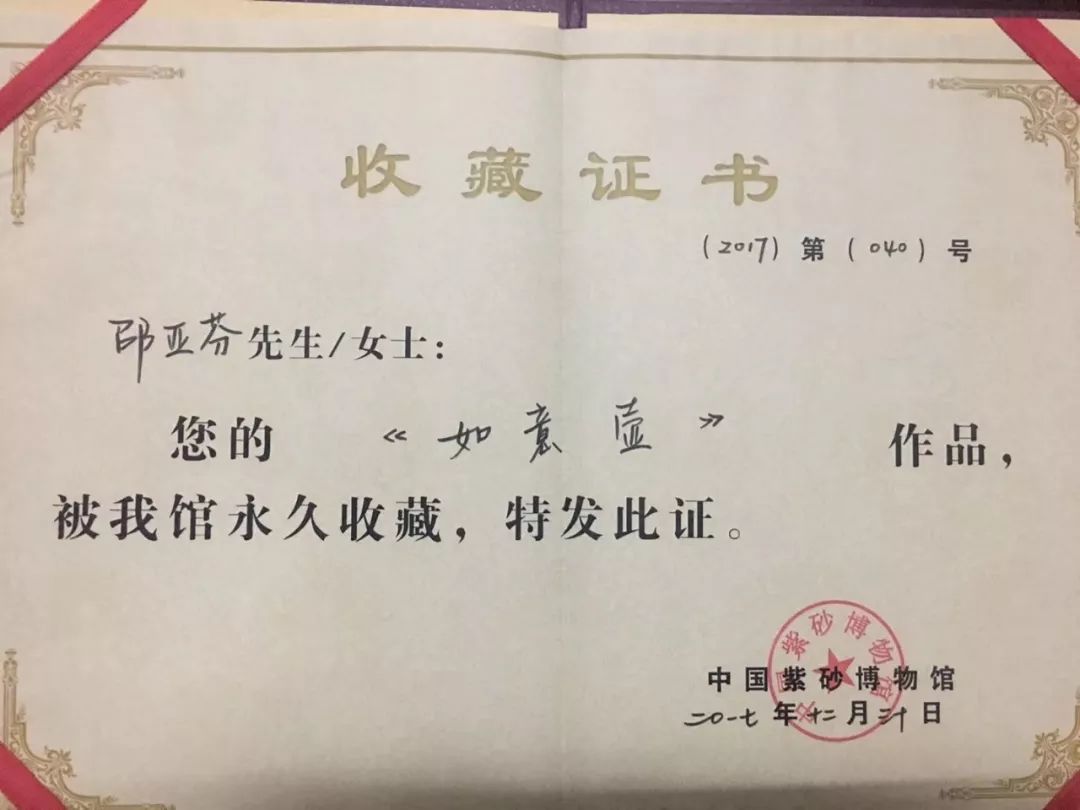 收藏证书
(2017)第(040)号
邵亚芬先生/女士:
您的 《如意壶》 作品,
被我馆永久收藏,特发此证。
中国紫砂博物馆
中国紫砂博物馆
二〇一七年十二月三十日